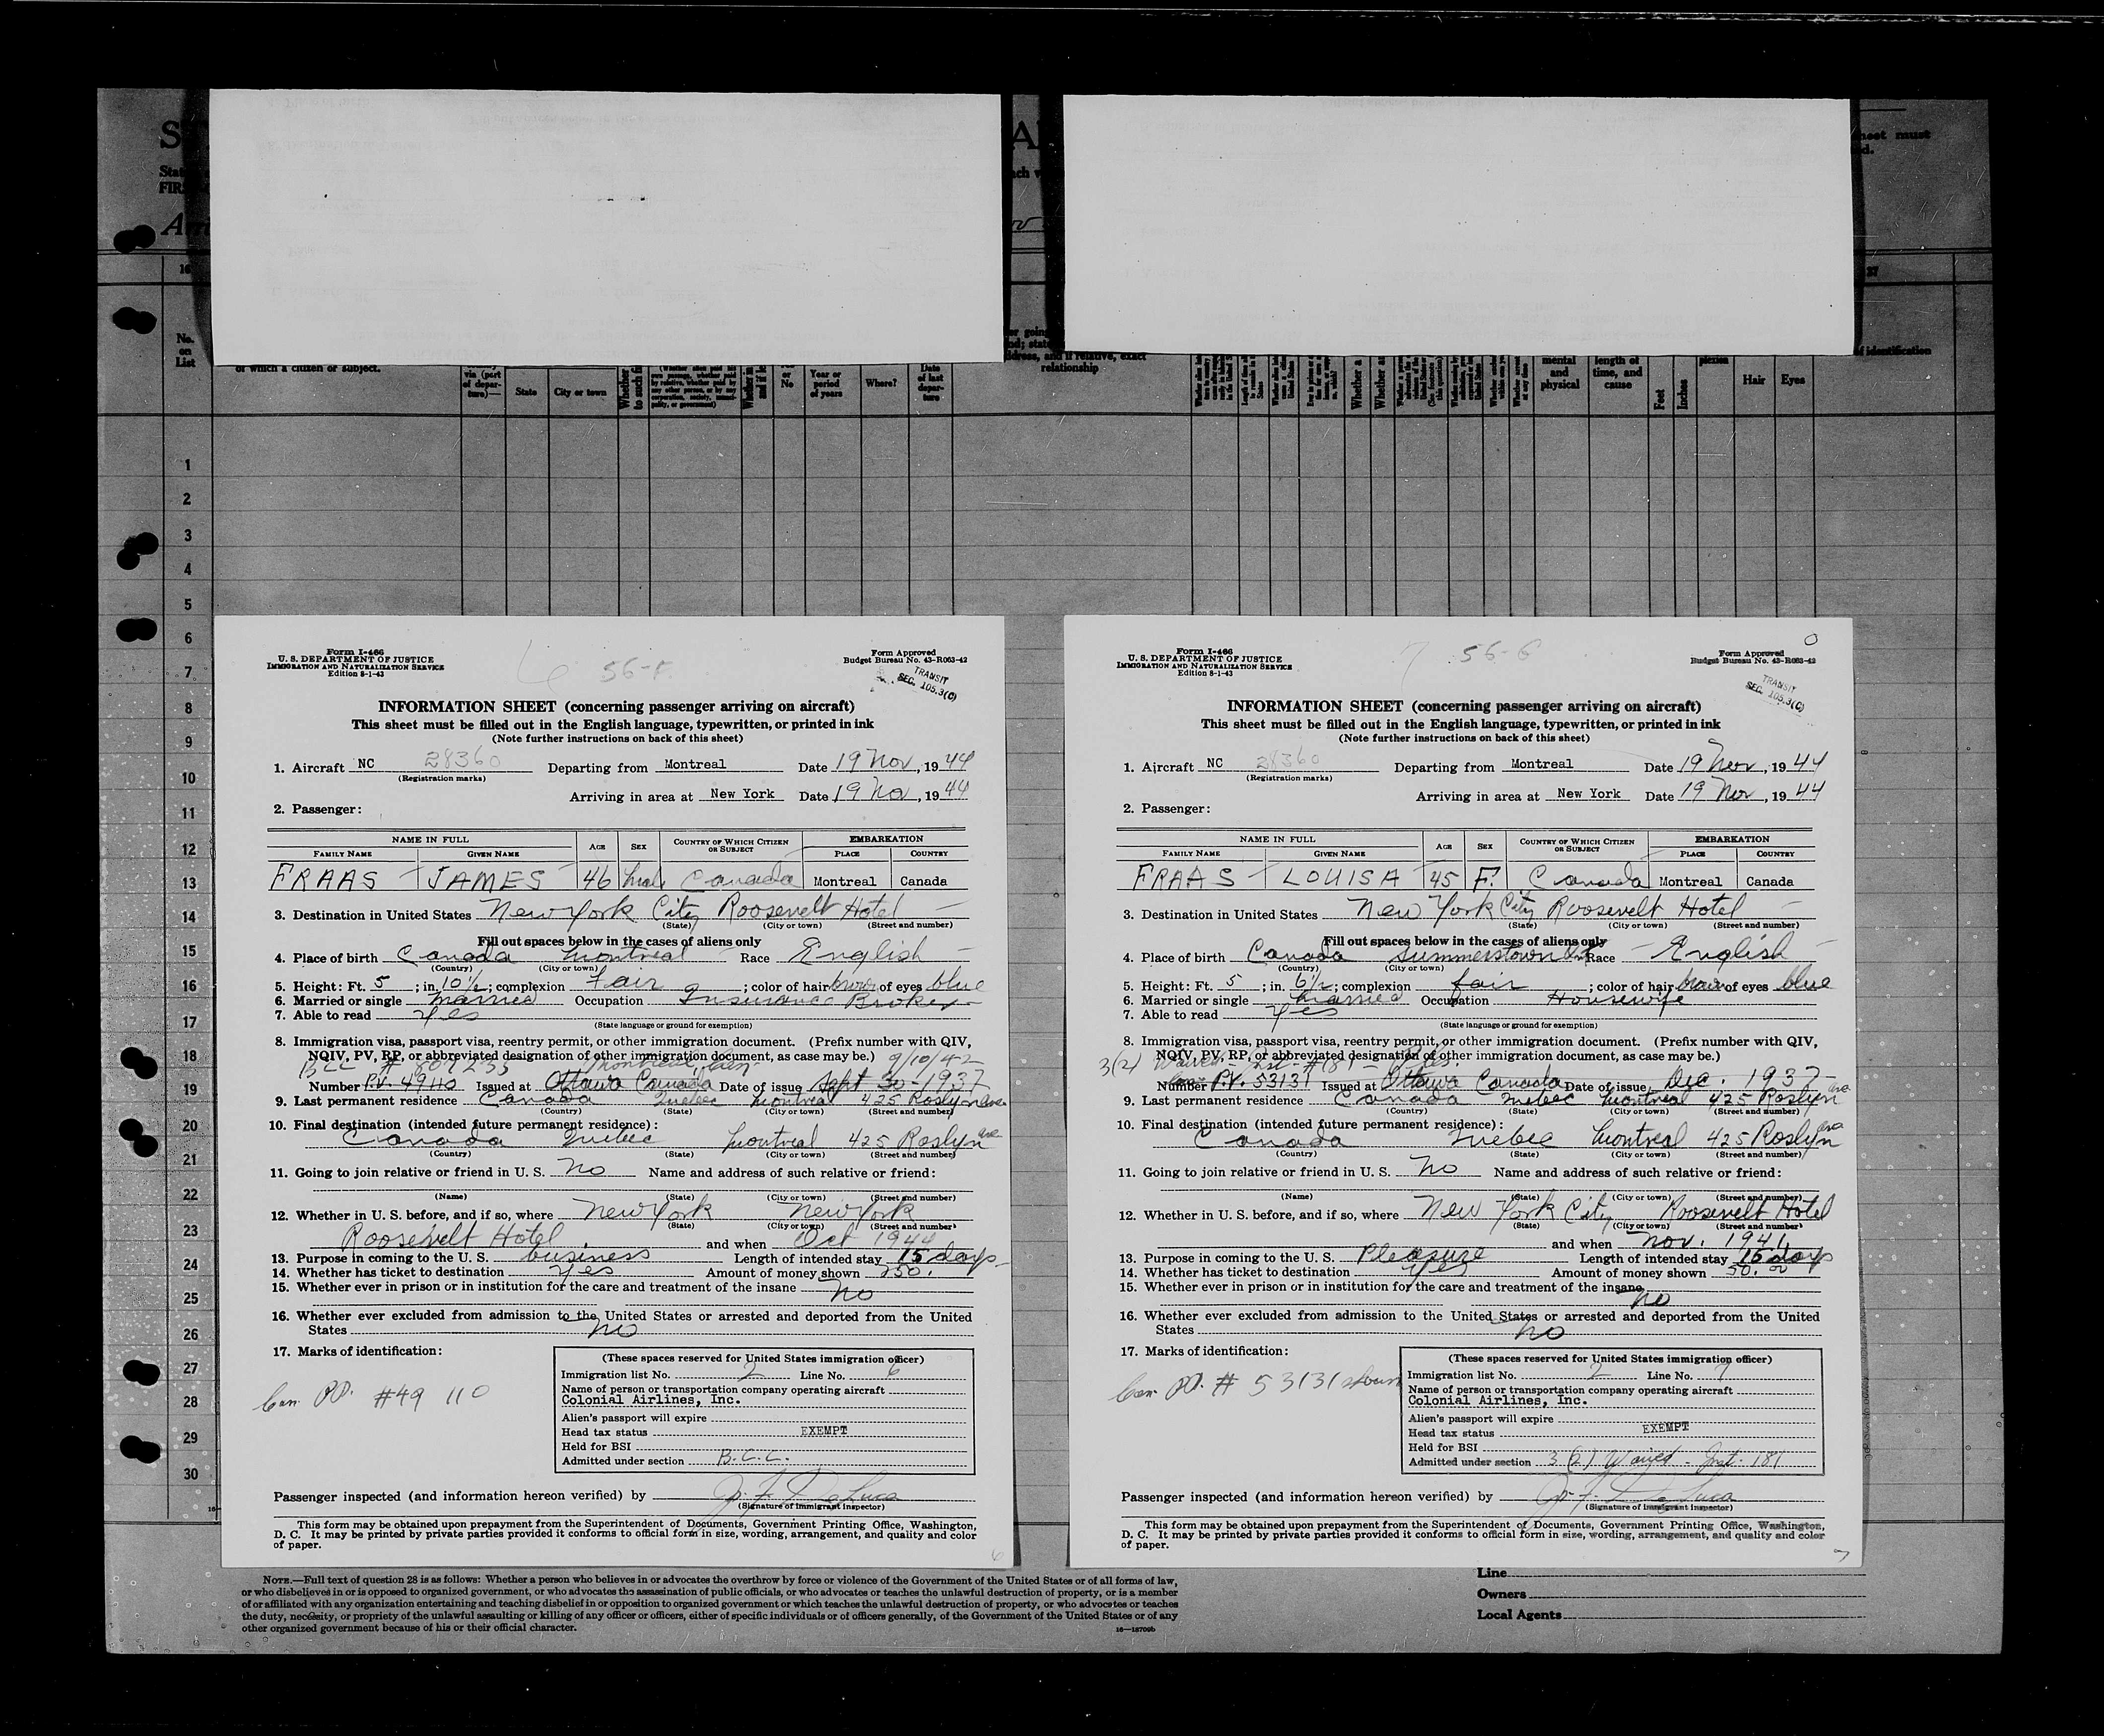 No.
on
List
of which a citizen or subject.
via (port
of depar-
ture)—
State
City or town
or
No
Year or
period
of years
Where?
Date
of last
depar-
ture
relationship
mental
and
physical
length of
time, and
cause
Feet
Inches
Hair
Eyes
1
2
3
4
5
6
7
8
9
10
11
12
13
14
15
16
17
18
19
20
21
22
23
24
25
26
27
28
29
30
Form I-466
U. S. DEPARTMENT OF JUSTICE
IMMIGRATION AND NATURALIZATION SERVICE
Edition 8-1-43
6 56-F
Form Approved
Budget Bureau No. 43-R063-42
TRANSIT
SEC. 105.3(C)
INFORMATION SHEET (concerning passenger arriving on aircraft)
This sheet must be filled out in the English language, typewritten, or printed in ink
(Note further instructions on back of this sheet)
1. Aircraft NC 28360 Departing from Montreal Date 19 Nov, 1944
(Registration marks)
Arriving in area at New York Date 19 No, 1944
2. Passenger:
NAME IN FULL
AGE
SEX
COUNTRY OF WHICH CITIZEN
OR SUBJECT
EMBARKATION
FAMILY NAME GIVEN NAME PLACE COUNTRY
FRAAS JAMES 46 Male Canada Montreal Canada
3. Destination in United States New York City Roosevelt Hotel
(State) (City or town) (Street and number)
Fill out spaces below in the cases of aliens only
4. Place of birth Canada Montreal Race English
(Country) (City or town)
5. Height: Ft. 5; in. 10½; complexion Fair; color of hair brown of eyes blue
6. Married or single Married Occupation Insurance Broker
7. Able to read Yes
(State language or ground for exemption)
8. Immigration visa, passport visa, reentry permit, or other immigration document. (Prefix number with QIV,
NQIV, PV, RP, or abbreviated designation of other immigration document, as case may be.) 9/10/42
BCC # 807233 Montreal, Can.
Number P.V. 49110 Issued at Ottawa Canada Date of issue Sept 30-1937
9. Last permanent residence Canada Quebec Montreal 425 Roslyn ave
(Country) (State) (City or town) (Street and number)
10. Final destination (intended future permanent residence):
Canada Quebec Montreal 425 Roslyn ave
(Country) (State) (City or town) (Street and number)
11. Going to join relative or friend in U. S. No Name and address of such relative or friend:
(Name) (State) (City or town) (Street and number)
12. Whether in U. S. before, and if so, where New York New York
(State) (City or town) (Street and number)
Roosevelt Hotel and when Oct 1944
13. Purpose in coming to the U. S. business Length of intended stay 15 days
14. Whether has ticket to destination Yes Amount of money shown 250.
15. Whether ever in prison or in institution for the care and treatment of the insane No
16. Whether ever excluded from admission to the United States or arrested and deported from the United
States No
17. Marks of identification:
Can. PP. #49 110
(These spaces reserved for United States immigration officer)
Immigration list No. 2 Line No. 6
Name of person or transportation company operating aircraft
Colonial Airlines, Inc.
Alien's passport will expire
Head tax status EXEMPT
Held for BSI
Admitted under section B.C.C.
Passenger inspected (and information hereon verified) by J. F. DeLuca
(Signature of immigrant inspector)
This form may be obtained upon prepayment from the Superintendent of Documents, Government Printing Office, Washington,
D. C. It may be printed by private parties provided it conforms to official form in size, wording, arrangement, and quality and color
of paper.
6
Form I-466
U. S. DEPARTMENT OF JUSTICE
IMMIGRATION AND NATURALIZATION SERVICE
Edition 8-1-43
7 56-G
Form Approved
Budget Bureau No. 43-R063-42
TRANSIT
SEC. 105.3(C)
INFORMATION SHEET (concerning passenger arriving on aircraft)
This sheet must be filled out in the English language, typewritten, or printed in ink
(Note further instructions on back of this sheet)
1. Aircraft NC 28360 Departing from Montreal Date 19 Nov, 1944
(Registration marks)
Arriving in area at New York Date 19 Nov, 1944
2. Passenger:
NAME IN FULL
AGE
SEX
COUNTRY OF WHICH CITIZEN
OR SUBJECT
EMBARKATION
FAMILY NAME GIVEN NAME PLACE COUNTRY
FRAAS LOUISA 45 F. Canada Montreal Canada
3. Destination in United States New York City Roosevelt Hotel
(State) (City or town) (Street and number)
Fill out spaces below in the cases of aliens only
4. Place of birth Canada Summerstown Ont Race English
(Country) (City or town)
5. Height: Ft. 5; in. 6½; complexion fair; color of hair brown of eyes blue
6. Married or single Married Occupation Housewife
7. Able to read Yes
(State language or ground for exemption)
8. Immigration visa, passport visa, reentry permit, or other immigration document. (Prefix number with QIV,
NQIV, PV, RP, or abbreviated designation of other immigration document, as case may be.)
3(2) Waived Inst. #181
Number P.V. 53131 Issued at Ottawa Canada Date of issue Dec. 1937
9. Last permanent residence Canada Quebec Montreal 425 Roslyn ave
(Country) (State) (City or town) (Street and number)
10. Final destination (intended future permanent residence):
Canada Quebec Montreal 425 Roslyn ave
(Country) (State) (City or town) (Street and number)
11. Going to join relative or friend in U. S. No Name and address of such relative or friend:
(Name) (State) (City or town) (Street and number)
12. Whether in U. S. before, and if so, where New York City Roosevelt Hotel
(State) (City or town) (Street and number)
and when Nov. 1941
13. Purpose in coming to the U. S. Pleasure Length of intended stay 15 days
14. Whether has ticket to destination Yes Amount of money shown 50.
15. Whether ever in prison or in institution for the care and treatment of the insane No
16. Whether ever excluded from admission to the United States or arrested and deported from the United
States No
17. Marks of identification:
Can. PP. # 53131
(These spaces reserved for United States immigration officer)
Immigration list No. 2 Line No. 7
Name of person or transportation company operating aircraft
Colonial Airlines, Inc.
Alien's passport will expire
Head tax status EXEMPT
Held for BSI
Admitted under section 3(2) Waived - Inst. 181
Passenger inspected (and information hereon verified) by J. F. DeLuca
(Signature of immigrant inspector)
This form may be obtained upon prepayment from the Superintendent of Documents, Government Printing Office, Washington,
D. C. It may be printed by private parties provided it conforms to official form in size, wording, arrangement, and quality and color
of paper.
7
NOTE.—Full text of question 28 is as follows: Whether a person who believes in or advocates the overthrow by force or violence of the Government of the United States or of all forms of law,
or who disbelieves in or is opposed to organized government, or who advocates the assassination of public officials, or who advocates or teaches the unlawful destruction of property, or is a member
of or affiliated with any organization entertaining and teaching disbelief in or opposition to organized government or which teaches the unlawful destruction of property, or who advocates or teaches
the duty, necessity, or propriety of the unlawful assaulting or killing of any officer or officers, either of specific individuals or of officers generally, of the Government of the United States or of any
other organized government because of his or their official character.
16—18709b
Line
Owners
Local Agents